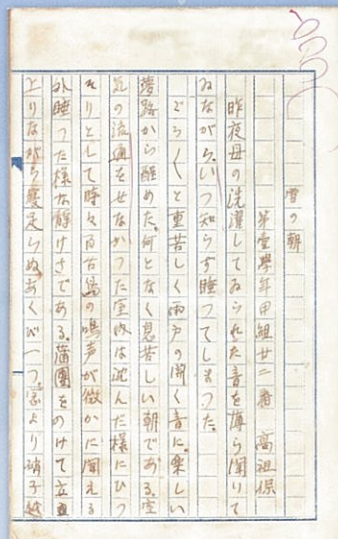 雪の朝
第壹學年甲組廿二番 高祖保
昨夜母の洗濯してゐられた音を薄ら聞いて
ゐながら、いつ知らず睡つてしまつた。
どろ〱と重苦しく雨戸の開く音に。樂しい
夢路から醒めた。何となく息苦しい朝である。室
気の流通をせなかつた室内は沈んだ様にひつ
そりとして時々百舌鳥の鳴声が微かに聞える
外睡つた様な靜けさである。蒲團をのけて立上
上りながら慕足らぬあくび一つ。窓より硝子越